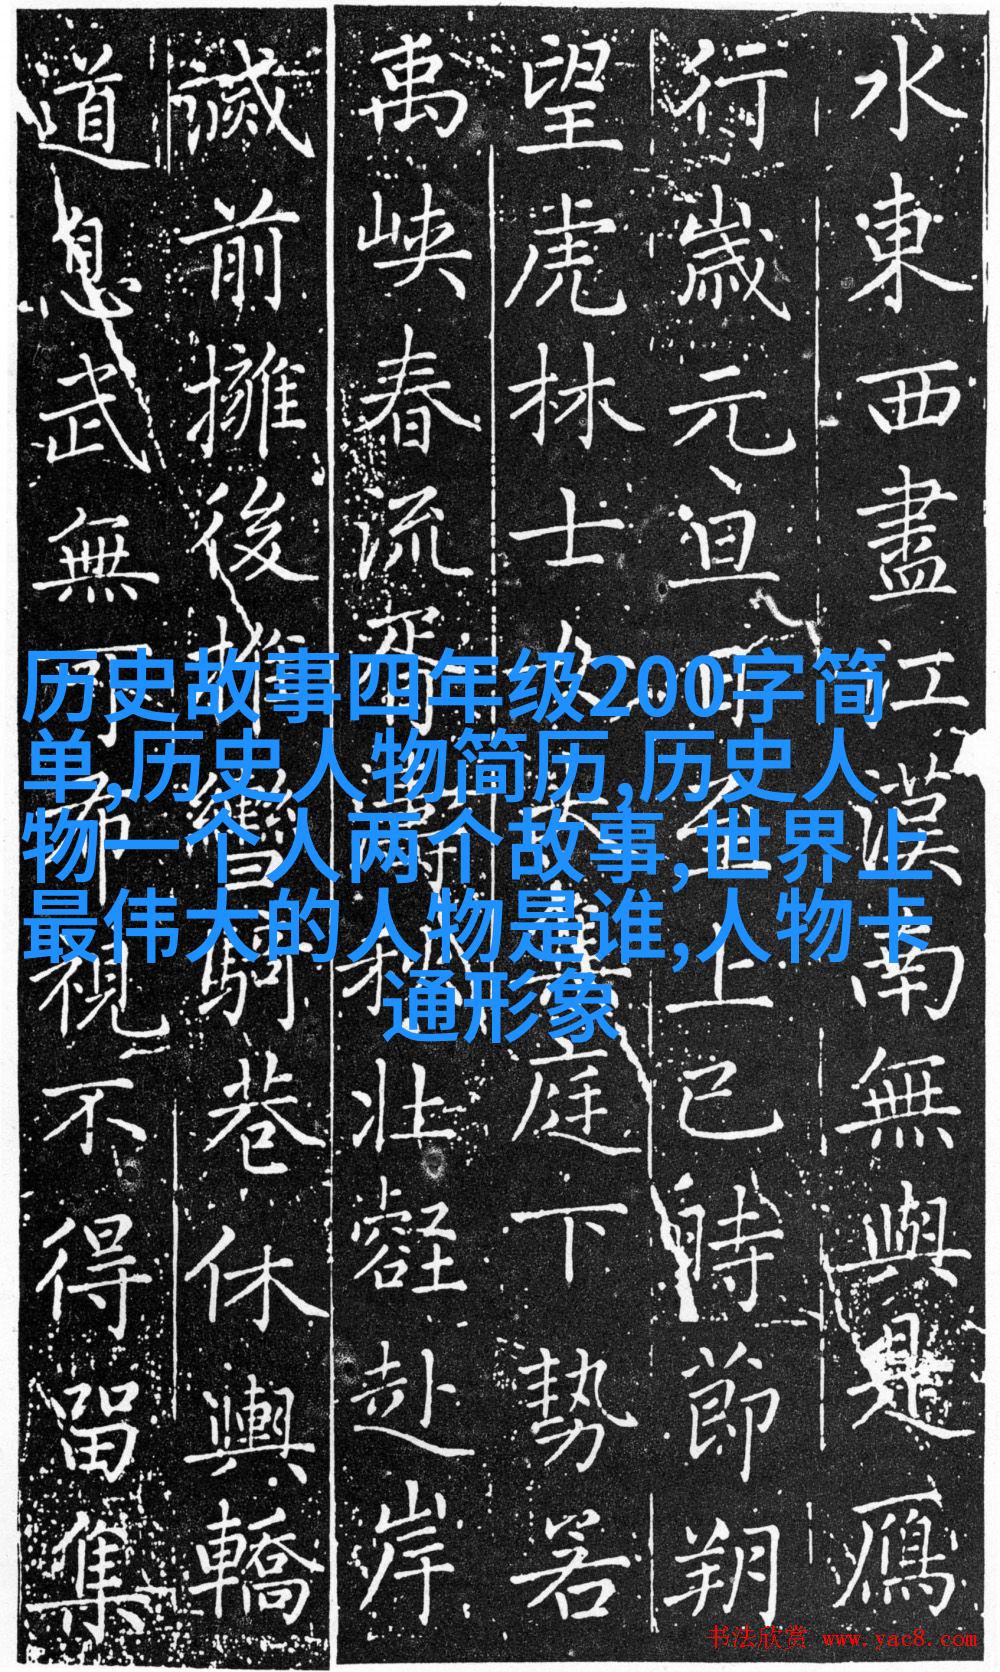 水東西盡江漢南無與是鴈
行歲元旦至上巳時節朔
望虎林士女集庭下勢若
禹峽春流胥濤秋壯壑赴岸
前擁後推駒巷休輿轎
道息武無可視不得留集
历史故事四年级200字简
单,历史人物简历,历史人
物一个人两个故事,世界上
最伟大的人物是谁,人物卡
通形象
书法欣赏 www.yac8.com